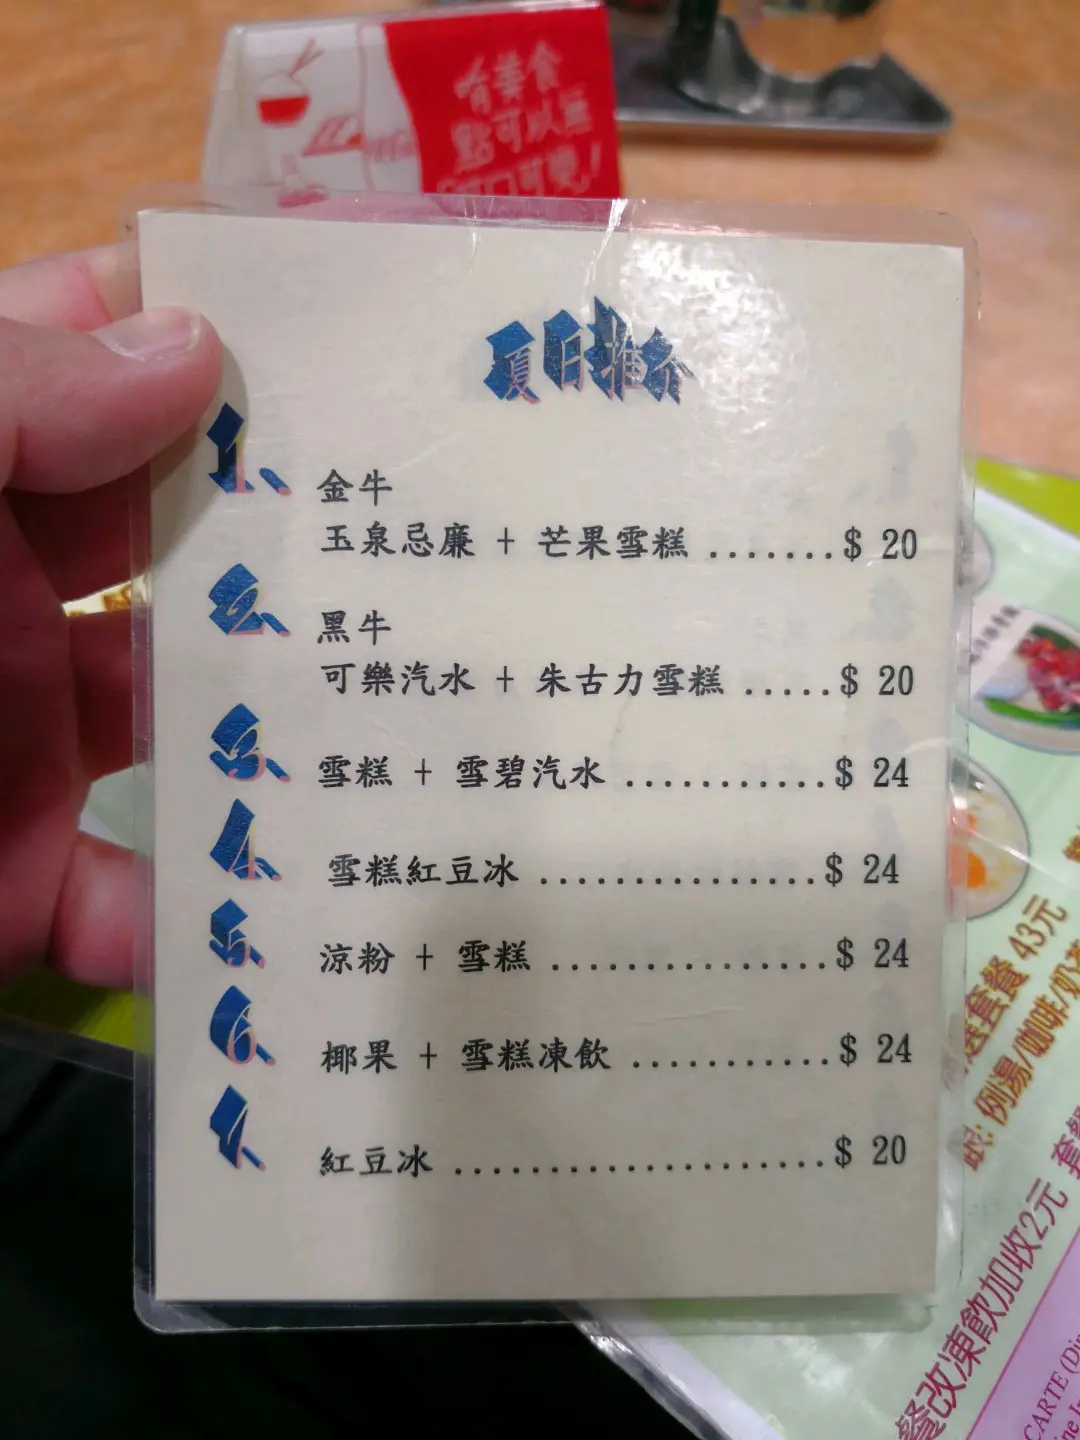 有美食
點可以無
可口可樂!
夏日推介
1、
金牛
玉泉忌廉 + 芒果雪糕 .......$ 20
2、
黑牛
可樂汽水 + 朱古力雪糕 .....$ 20
3、
雪糕 + 雪碧汽水 ...........$ 24
4、
雪糕紅豆冰 ...............$ 24
5、
涼粉 + 雪糕 ...............$ 24
6、
椰果 + 雪糕凍飲 ...........$ 24
7、
紅豆冰 ....................$ 20
套餐 43元
例湯/咖啡/奶茶
餐改凍飲加收2元
CARTE